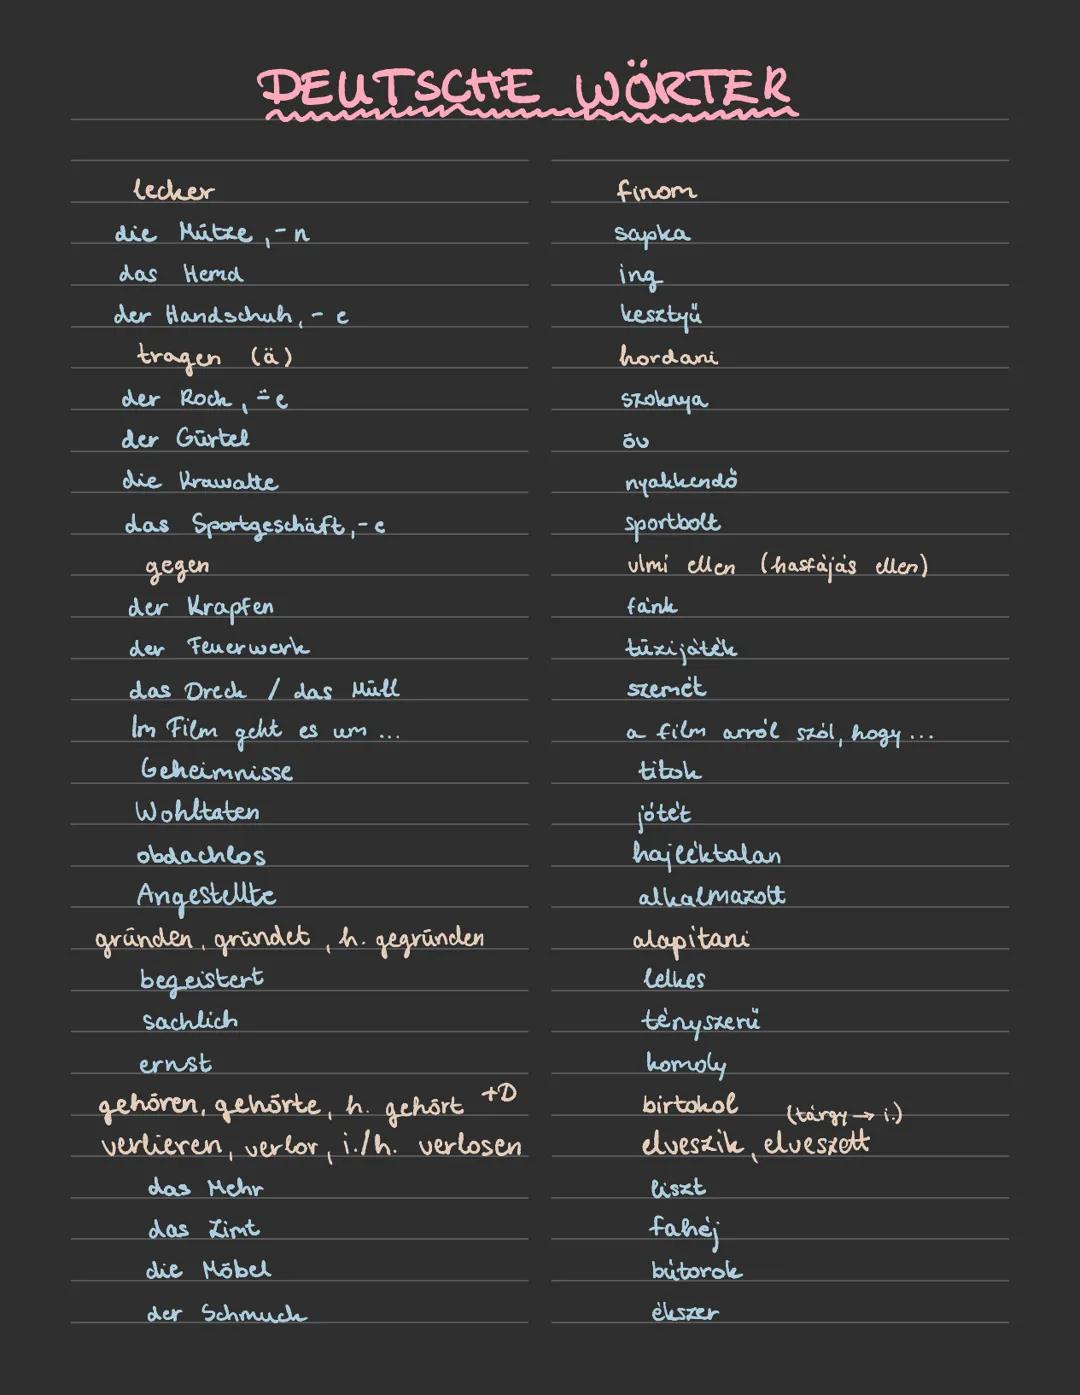 DEUTSCHE WÖRTER
lecker finom
die Mütze, -n sapka
das Hemd ing
der Handschuh, -e kesztyű
tragen (ä) hordani
der Rock, ⸚e szoknya
der Gürtel öv
die Krawatte nyakkendő
das Sportgeschäft, -e sportbolt
gegen vlmi ellen (hasfájás ellen)
der Krapfen fánk
der Feuerwerk tűzijáték
das Dreck / das Müll szemét
Im Film geht es um ... a film arról szól, hogy ...
Geheimnisse titok
Wohltaten jótét
obdachlos hajléktalan
Angestellte alkalmazott
gründen, gründet, h. gegründen alapítani
begeistert lelkes
sachlich tényszerű
ernst komoly
gehören, gehörte, h. gehört +D birtokol
verlieren, verlor, i./h. verlosen elveszik, elveszett (tárgy → i.)
das Mehr liszt
das Zimt fahéj
die Möbel bútorok
der Schmuck ékszer